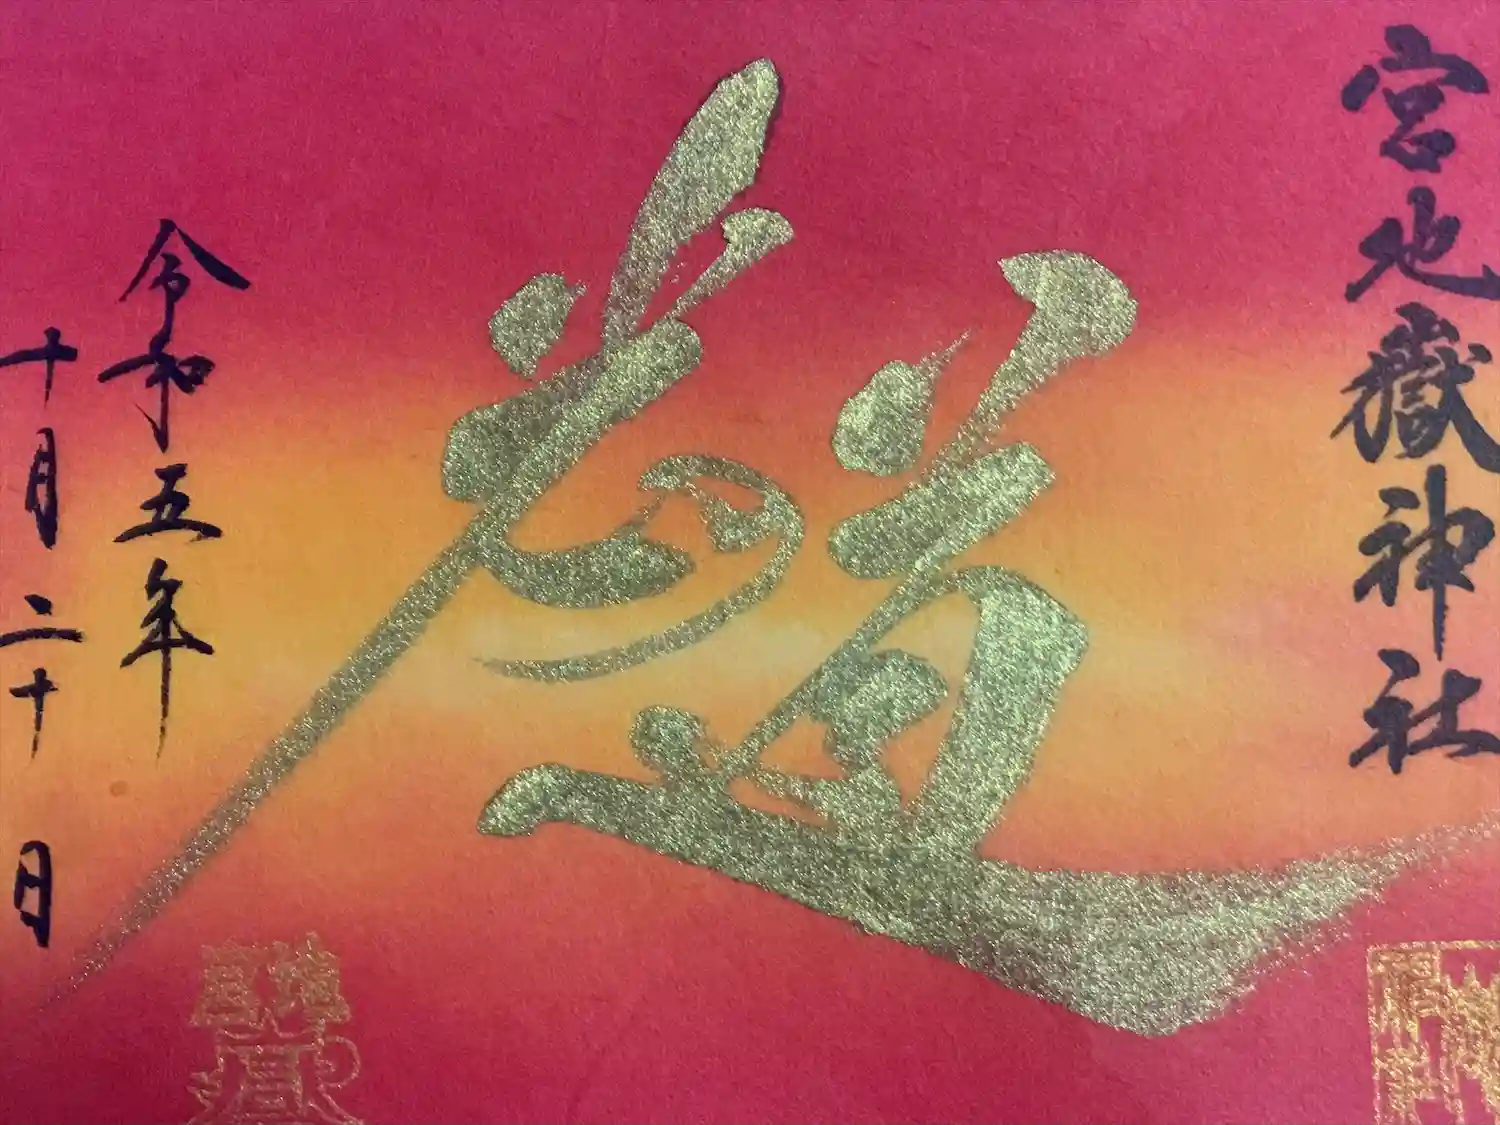 宮地嶽神社
光道
令和五年
十月二十日